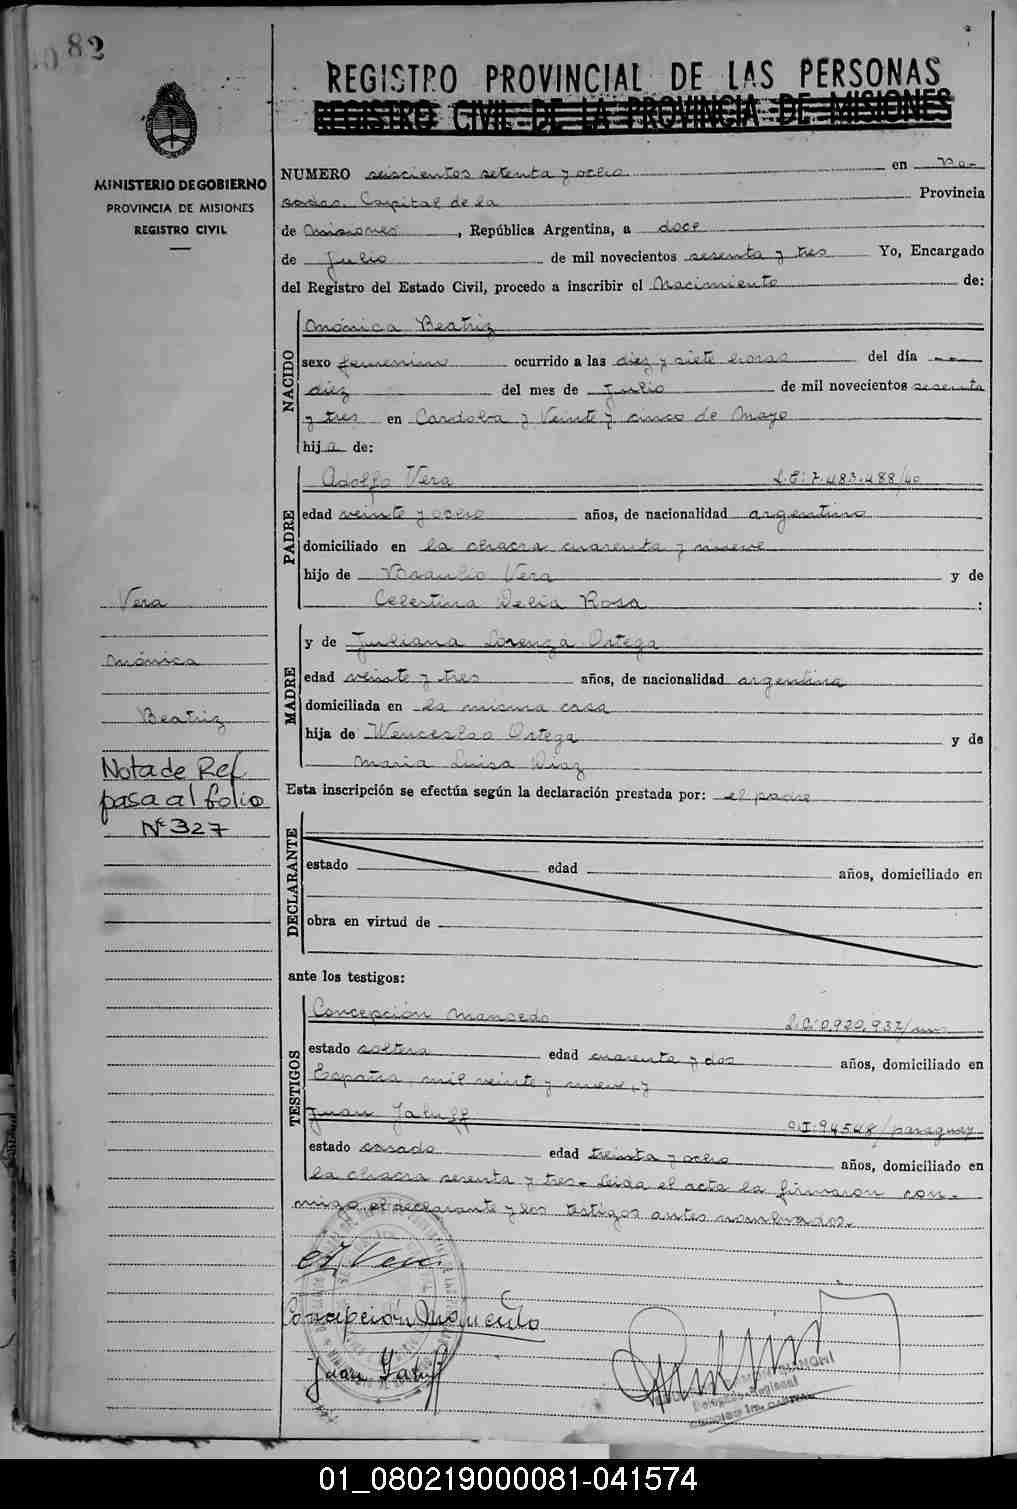 82
REGISTRO PROVINCIAL DE LAS PERSONAS
REGISTRO CIVIL DE LA PROVINCIA DE MISIONES
MINISTERIO DE GOBIERNO
PROVINCIA DE MISIONES
REGISTRO CIVIL
NUMERO seiscientos setenta y ocho en Po-
sadas. Capital de la Provincia
de Misiones, República Argentina, a doce
de Julio de mil novecientos sesenta y tres Yo, Encargado
del Registro del Estado Civil, procedo a inscribir el Nacimiento de:
NACIDO
Mónica Beatriz
sexo femenino ocurrido a las diez y siete horas del día
diez del mes de Julio de mil novecientos sesenta
y tres en Cordoba y Veinte y cinco de Mayo
hija de:
PADRE
Adolfo Vera L.E: 7.483.488/40
edad veinte y ocho años, de nacionalidad argentino
domiciliado en la chacra cuarenta y nueve
hijo de Braulio Vera y de
Celestina Delia Rosa :
MADRE
y de Juliana Lorenza Ortega
edad veinte y tres años, de nacionalidad argentina
domiciliada en la misma casa
hija de Wenceslao Ortega y de
Maria Luisa Diaz
Esta inscripción se efectúa según la declaración prestada por: el padre
Vera
Mónica
Beatriz
Nota de Ref
pasa al folio
Nº 327
DECLARANTE
estado edad años, domiciliado en
obra en virtud de
ante los testigos:
TESTIGOS
Concepción Manzedo L.C: 0.920.937/
estado soltera edad cuarenta y dos años, domiciliado en
España, mil veinte y nueve, y
Juan Jaluff C.I: 94548/paraguay
estado casado edad treinta y ocho años, domiciliado en
la chacra sesenta y tres- Leida el acta la firmaron con-
migo, el declarante y los testigos antes nombrados.
Vera
Concepción
Juan Jaluff
01_080219000081-041574